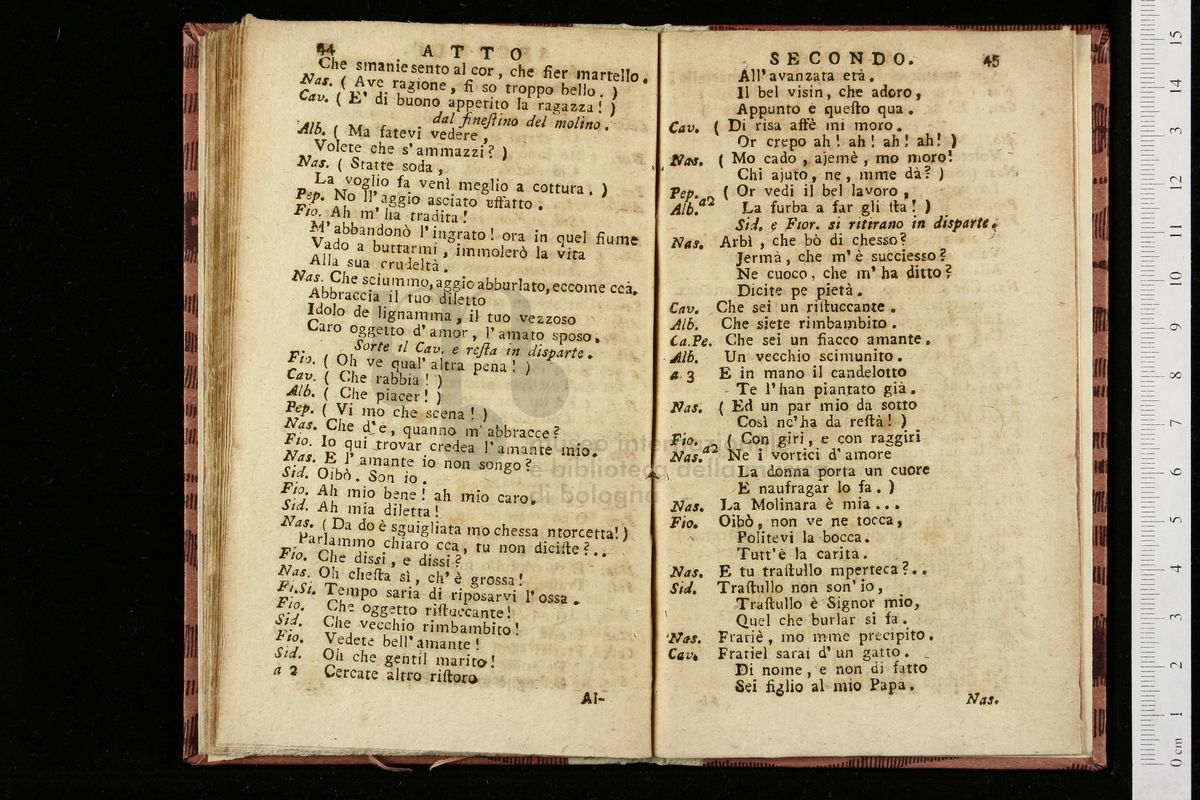 44 ATTO
Che smanie sento al cor, che fier martello.
Nas. ( Ave ragione, si so troppo bello. )
Cav. ( E' di buono appetito la ragazza! )
dal finestino del molino.
Alb. ( Ma fatevi vedere,
Volete che s'ammazzi? )
Nas. ( Statte soda,
La voglio fa venì meglio a cottura. )
Pep. No ll'aggio asciato affatto.
Fio. Ah m'ha tradita!
M'abbandonò l'ingrato! ora in quel fiume
Vado a buttarmi, immolerò la vita
Alla sua crudeltà.
Nas. Che sciummo, aggio abburlato, eccome ccà.
Abbraccia il tuo diletto
Idolo de lignamma, il tuo vezzoso
Caro oggetto d'amor, l'amato sposo.
Sorte il Cav. e resta in disparte.
Fio. ( Oh ve qual'altra pena! )
Cav. ( Che rabbia! )
Alb. ( Che piacer! )
Pep. ( Vi mo che scena! )
Nas. Che d'e, quanno m'abbracce?
Fio. Io qui trovar credea l'amante mio.
Nas. E l'amante io non songo?
Sid. Oibò. Son io.
Fio. Ah mio bene! ah mio caro.
Sid. Ah mia diletta!
Nas. ( Da do è sguigliata mo chessa ntorcetta! )
Parlammo chiaro cca, tu non diciste?..
Fio. Che dissi, e dissi?
Nas. Oh chesta sì, ch'è grossa!
Fi.Si. Tempo saria di riposarvi l'ossa.
Fio. Che oggetto ristuccante!
Sid. Che vecchio rimbambito!
Fio. Vedete bell'amante!
Sid. Oh che gentil marito!
a 2 Cercate altro ristoro
Al-
SECONDO. 45
All'avanzata età.
Il bel visin, che adoro,
Appunto è questo qua.
Cav. ( Di risa affè mi moro.
Or crepo ah! ah! ah! ah! )
Nas. ( Mo cado, ajemè, mo moro!
Chi ajuto, ne, mme dà? )
Pep. a2 ( Or vedi il bel lavoro,
Alb. La furba a far gli sta! )
Sid. e Fior. si ritirano in disparte.
Nas. Arbì, che bò di chesso?
Jermà, che m'è succiesso?
Ne cuoco, che m'ha ditto?
Dicite pe pietà.
Cav. Che sei un ristuccante.
Alb. Che siete rimbambito.
Ca.Pe. Che sei un fiacco amante.
Alb. Un vecchio scimunito.
a 3 E in mano il candelotto
Te l'han piantato già.
Nas. ( Ed un par mio da sotto
Così nc'ha da restà! )
Fio. a2 ( Con giri, e con raggiri
Nas. Ne i vortici d'amore
La donna porta un cuore
E naufragar lo fa. )
Nas. La Molinara è mia...
Fio. Oibò, non ve ne tocca,
Politevi la bocca.
Tutt'è la carità.
Nas. E tu trastullo mperteca?..
Sid. Trastullo non son'io,
Trastullo è Signor mio,
Quel che burlar si fa.
Nas. Fratiè, mo mme precipito.
Cav. Fratiel sarai d'un gatto.
Di nome, e non di fatto
Sei figlio al mio Papa.
Nas.
museo internazionale
e biblioteca della musica
di bologna
0 cm 1 2 3 4 5 6 7 8 9 10 11 12 13 14 15